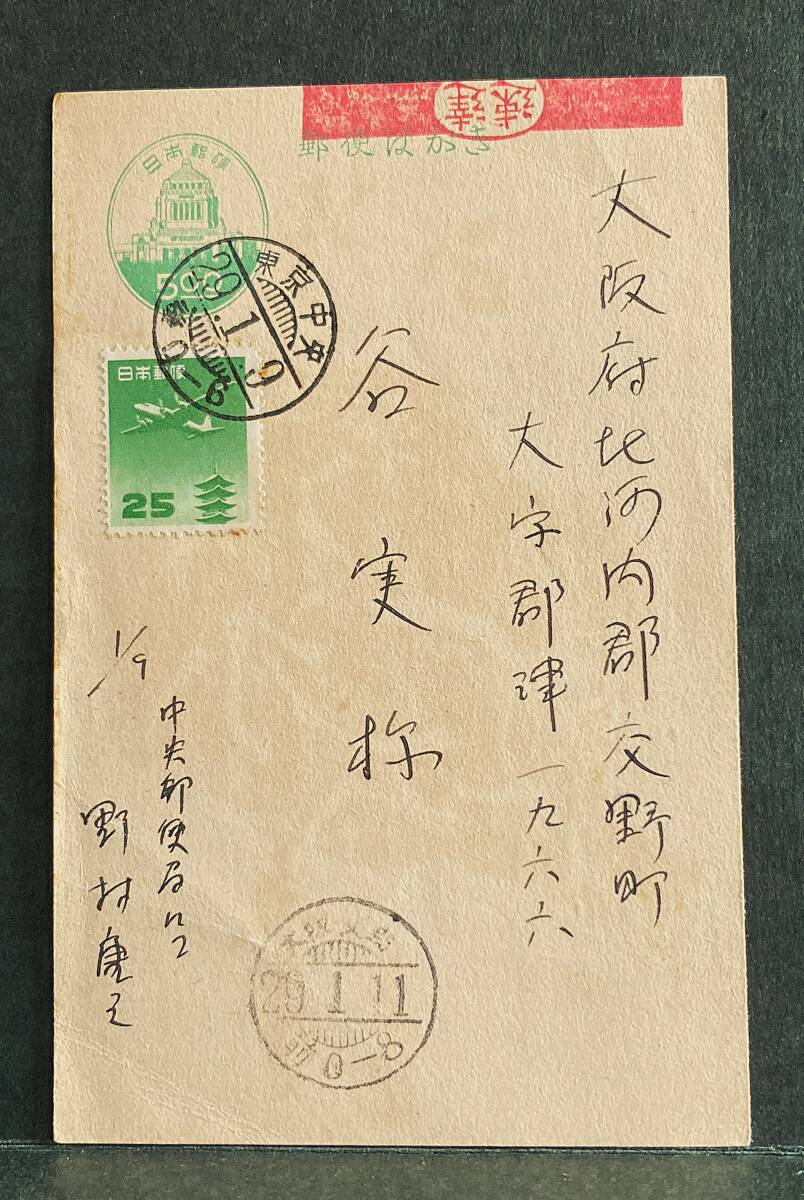 速達
郵便はがき
日本郵便
5 00
東京中央
29.1.9
日本郵便
25
大阪府北河内郡交野町
大字郡津一九六六
谷実様
1/9
中央郵便局にて
野村
29.1.11
前0-8